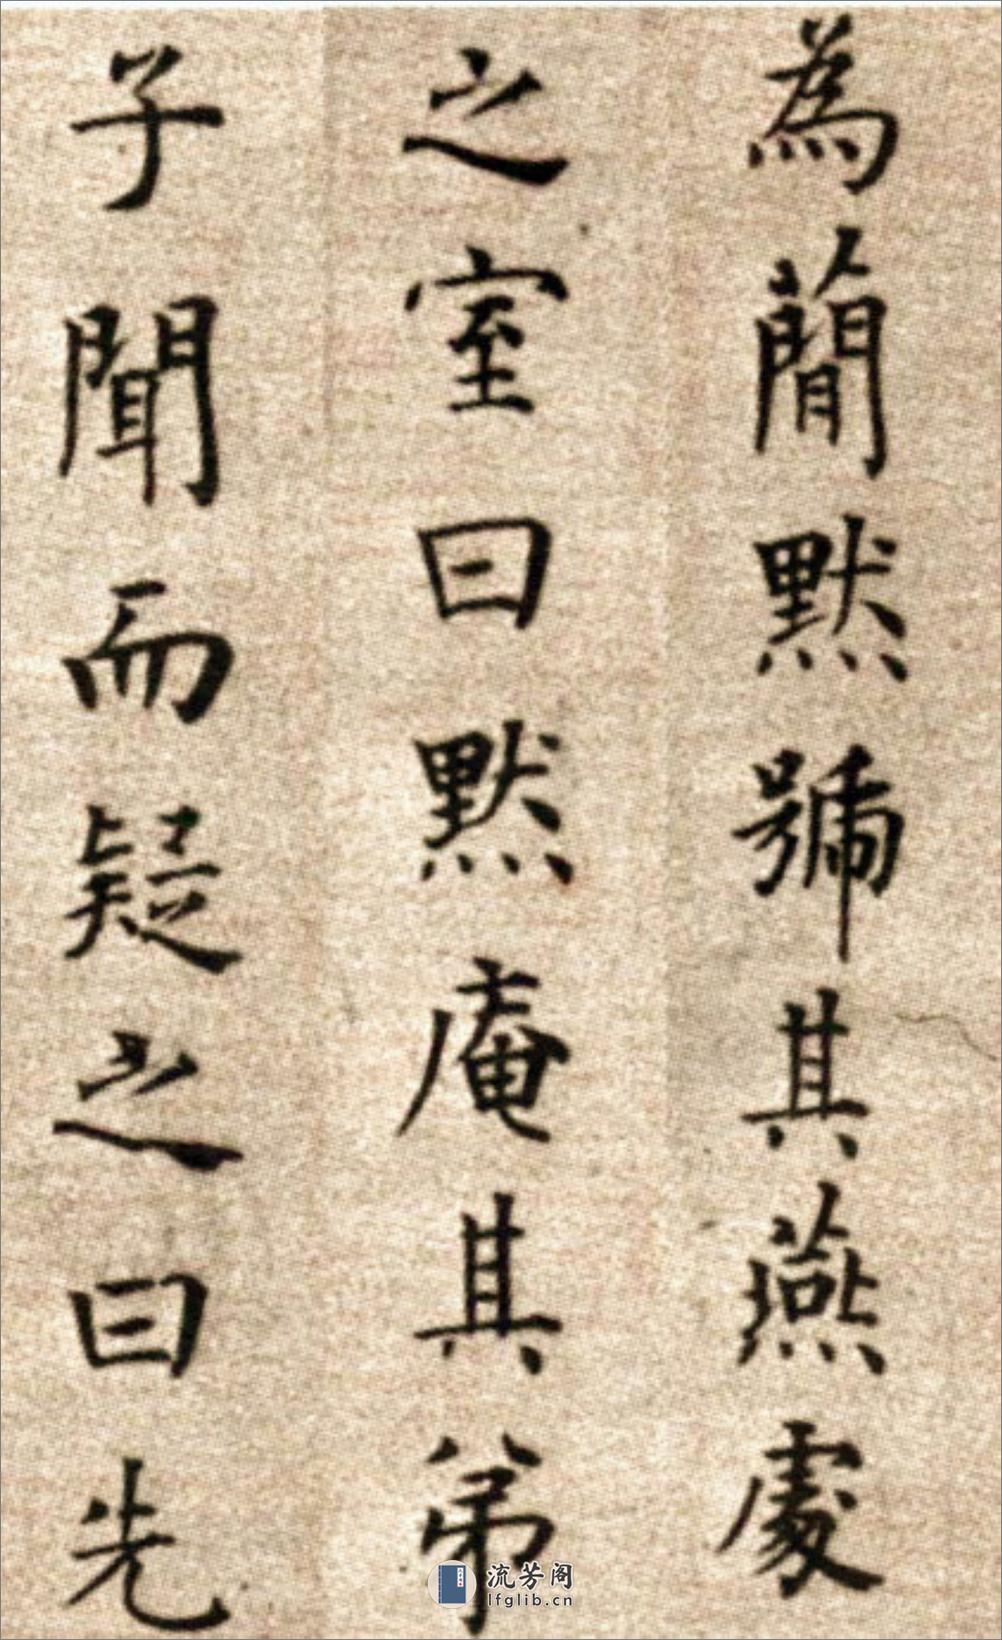 為簡默號其燕處
之室曰默庵其弟
子聞而疑之曰先
流芳阁
lfglib.cn